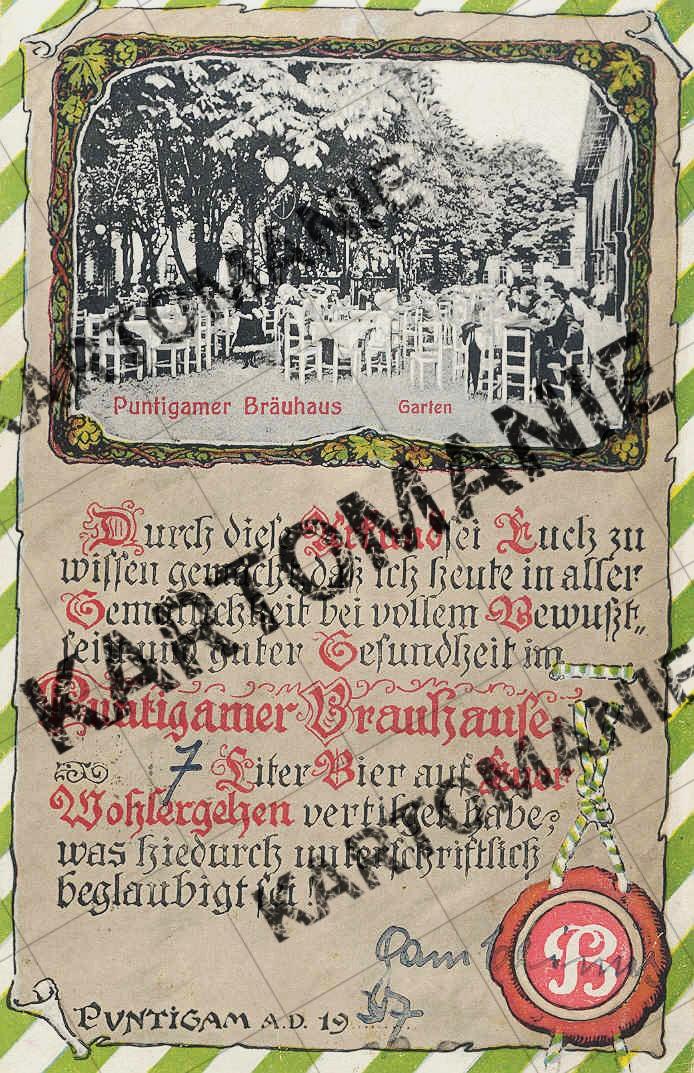 Puntigamer Bräuhaus Garten
Durch diese Urkund sei Euch zu
wissen gemacht, daß ich heute in aller
Gemütlichkeit bei vollem Bewußt„
sein und guter Gesundheit im
Puntigamer Brauhause
7 Liter Bier auf Euer
Wohlergehen vertilget habe,
was hiedurch unterschriftlich
beglaubigt sei!
PB
PUNTIGAM A.D. 19
KARTOMANIE
KARTOMANIE
KARTOMANIE
KARTOMANIE